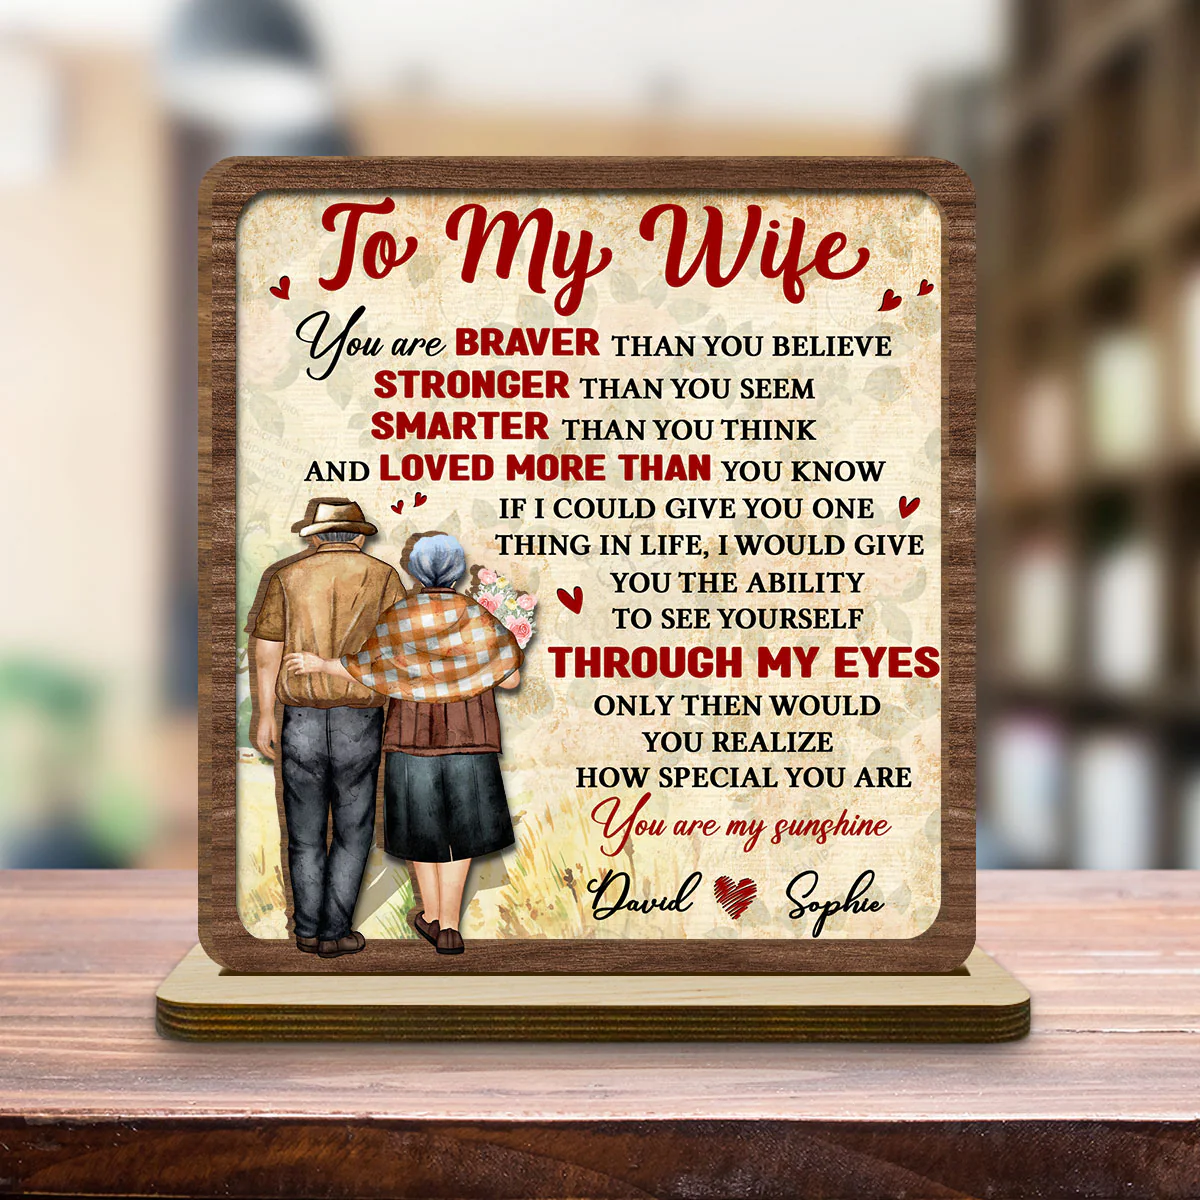 To My Wife
You are BRAVER THAN YOU BELIEVE
STRONGER THAN YOU SEEM
SMARTER THAN YOU THINK
AND LOVED MORE THAN YOU KNOW
IF I COULD GIVE YOU ONE
THING IN LIFE, I WOULD GIVE
YOU THE ABILITY
TO SEE YOURSELF
THROUGH MY EYES
ONLY THEN WOULD
YOU REALIZE
HOW SPECIAL YOU ARE
You are my sunshine
David Sophie